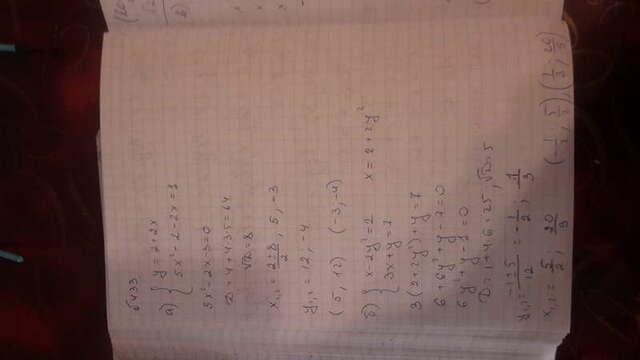 №433
а) { y = 2+2x
5x² - 2 - 2x = 1
5x² - 2x - 3 = 0
D = 4 + 4·3·5 = 64
√D = 8
x₁,₂ = (2±8)/2 ; 5, -3
y₁,₂ = 12, -4
(5, 12) (-3, -4)
б) { x - 2y² = 2 x = 2 + 2y²
3x + y = 7
3(2+2y²) + y = 7
6 + 6y² + y - 7 = 0
6y² + y - 1 = 0
D = 1 + 4·6 = 25, √D = 5
y₁,₂ = (-1±5)/12 = -1/2 ; 1/3
x₁,₂ = 5/2 ; 20/3 (-1/2 ; 5/2), (1/3 ; 20/3)